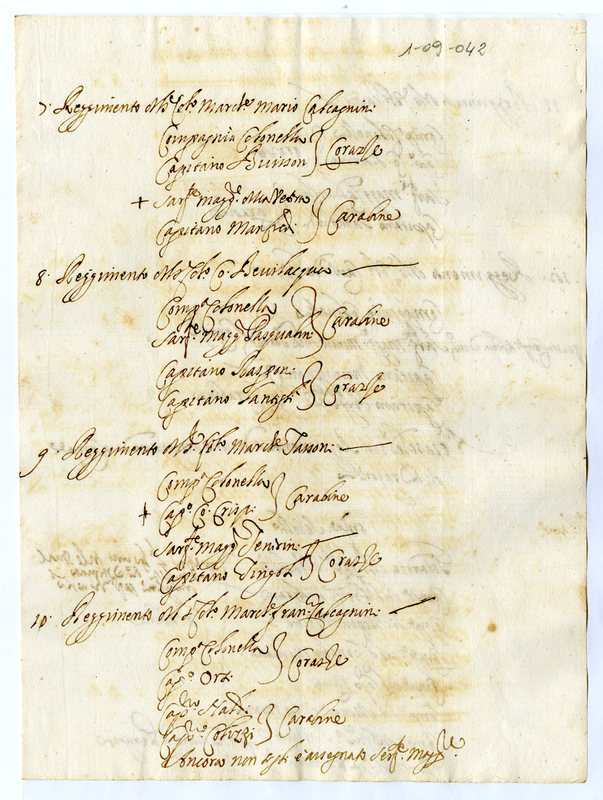 1-09-042
7. Reggimento del Sr. Colo. Marche. Mario Calcagnini
Compagnia Colonella
Capitano Buisson } Corazze
+ Sargte. Magge. dalla Vedra
Capitano Manfredi } Carabine
8. Reggimento del Sr. Colo. Co. Bevilacqua
Compa. Colonella
Sargte. Magge. Pasqualin } Carabine
Capitano Rasponi
Capitano } Corazze
9. Reggimento del Sr. Colo. Marche. Tassoni
Compa. Colonella
+ Capo. Co. Crispi } Carabine
Sargte. Magge.
Capitano } Corazze
10. Reggimento del Sr. Colo. Marche. Franco. Calcagnini
Compa. Colonella
Capo. Orti } Corazze
Capno.
Capno. } Carabine
Ancora non gli è assegnato Sergte. Magge.